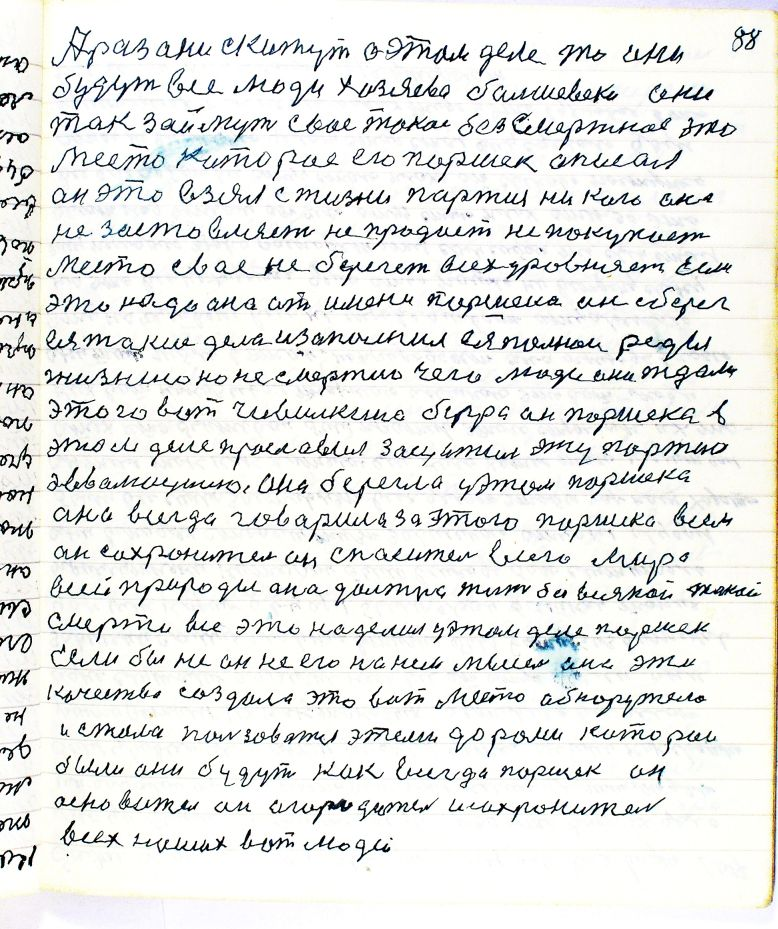 88
А раз ани скажут о этом деле то они
будут все люди хозяева балшевеки они
так займут свое такое безсмертное это
место каторае его паршек описал
ан это взял с жизни партия ни кого она
не застовляет не продает не покупает
место свае не бережет всех уровняет Если
это надо ана от имени паршека ан сберег
ся такие дела изаполнил ся полнои
жизнию но не смертию чего люди они ждали
этого вот бугра ан паршека в
этом деле прославил защитил эту партию
эввалюцию. Она берегла уэтом паршека
ана всегда говарила за этого паршека всем
ан сохронител ан спасител всего мира
всей природы ана должна жит без всякой такой
смерти все это наделил уэтом деле паршек
Если бы не он не его на нем мысел ана эти
качества создала это вот место абнаружела
и стала ползоватся этеми дарами катории
были они будут как всегда паршек он
основател ан исахронител
всех наших вот людей